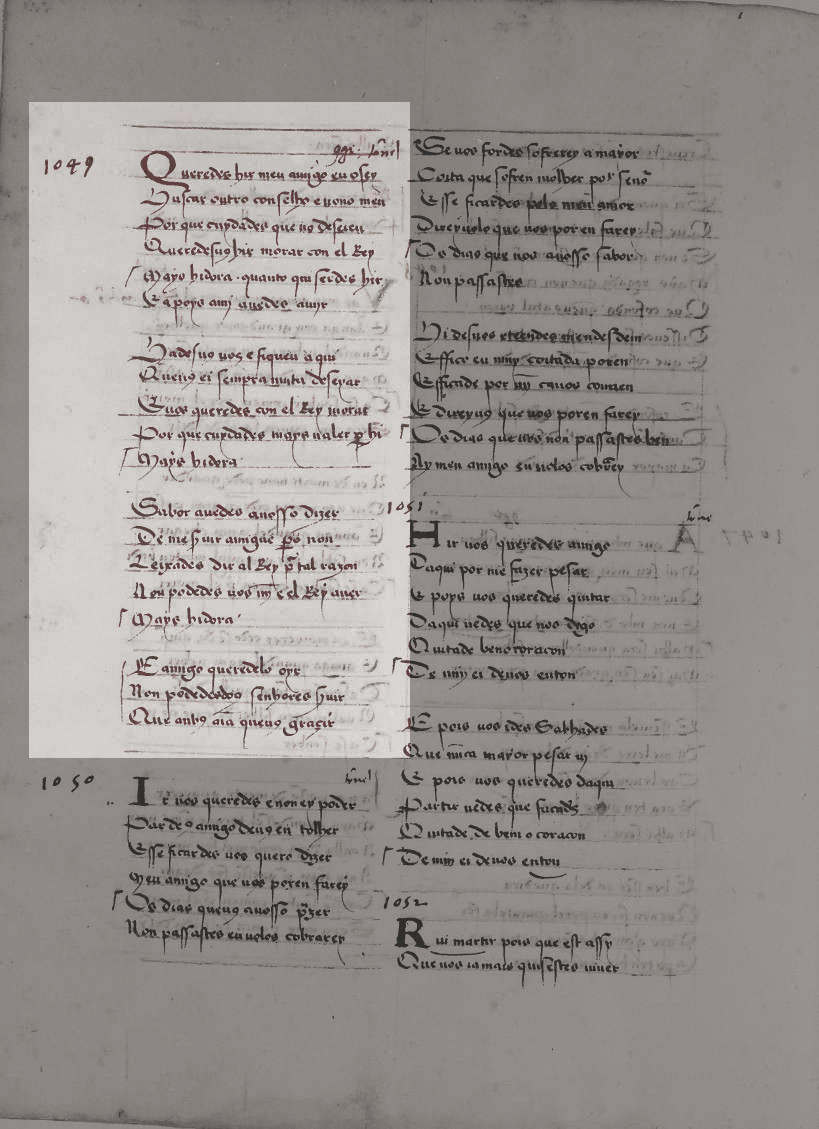 1049
Queredes hir meu amigo eu o sey
Buscar outro conselho e nono meu
Por que cuydades que uo deseieu
Queredesu9 hir morar con el Rey
Mays hidora . quanto qui serdes hir
Ca poys amj auedes auijr
Hides uo uos e fiqueu aqui
Queu9 ei sempra muita deseiar
Euos queredes con el Rey morar
Por que cuydades mays ualer per hi
Mays hidora
Sabor auedes auosso dizer
De me seruir amigue pero non
Leixades dir al Rey por tal razon
Non podedes uos mi e el Rey auer
Mays hidora
E amigo queredelo oyr
Non podedesdos senhores seruir
Que anbos aia queu9 gracir
1050
Ir uos queredes e non ey poder
Par deus amigo deuos en tolher
Esse ficardes uos quero dizer
Meu amigo que uos poren farey
Os dias queu9 auosso prazer
Non passastes euuolos cobrarey
Se uos fordes sofrerey a mayor
Coita que sofreu molher por senor
Esse ficardes polo meu amor
Direyuolo que uos poren farey
Os dias que uos auosso sabor
Non passastes
Hi desuos
Effico eu mui coitada poren
Efficade por mi
E direyuos que uos poren farey
Os dias que uos non passastes ben
Ay meu amigo euuolos cobrarey
1051
Hir uos queredes amigo
Daqui por me fazer pesar
E poys uos queredes quitar
Daqui uedes que uos digo
Quitade beno coracon
De min ei deuos enton
E pois uos ides Sabhades
Que nunca mayor pesar ui
E pois uos queredes daqui
Partir uedes que facades
Quitade de ben o coracon
De min ei deuos enton
1052
Rui martinz pois que est assy
Que uos ia mais quisestes uiuer